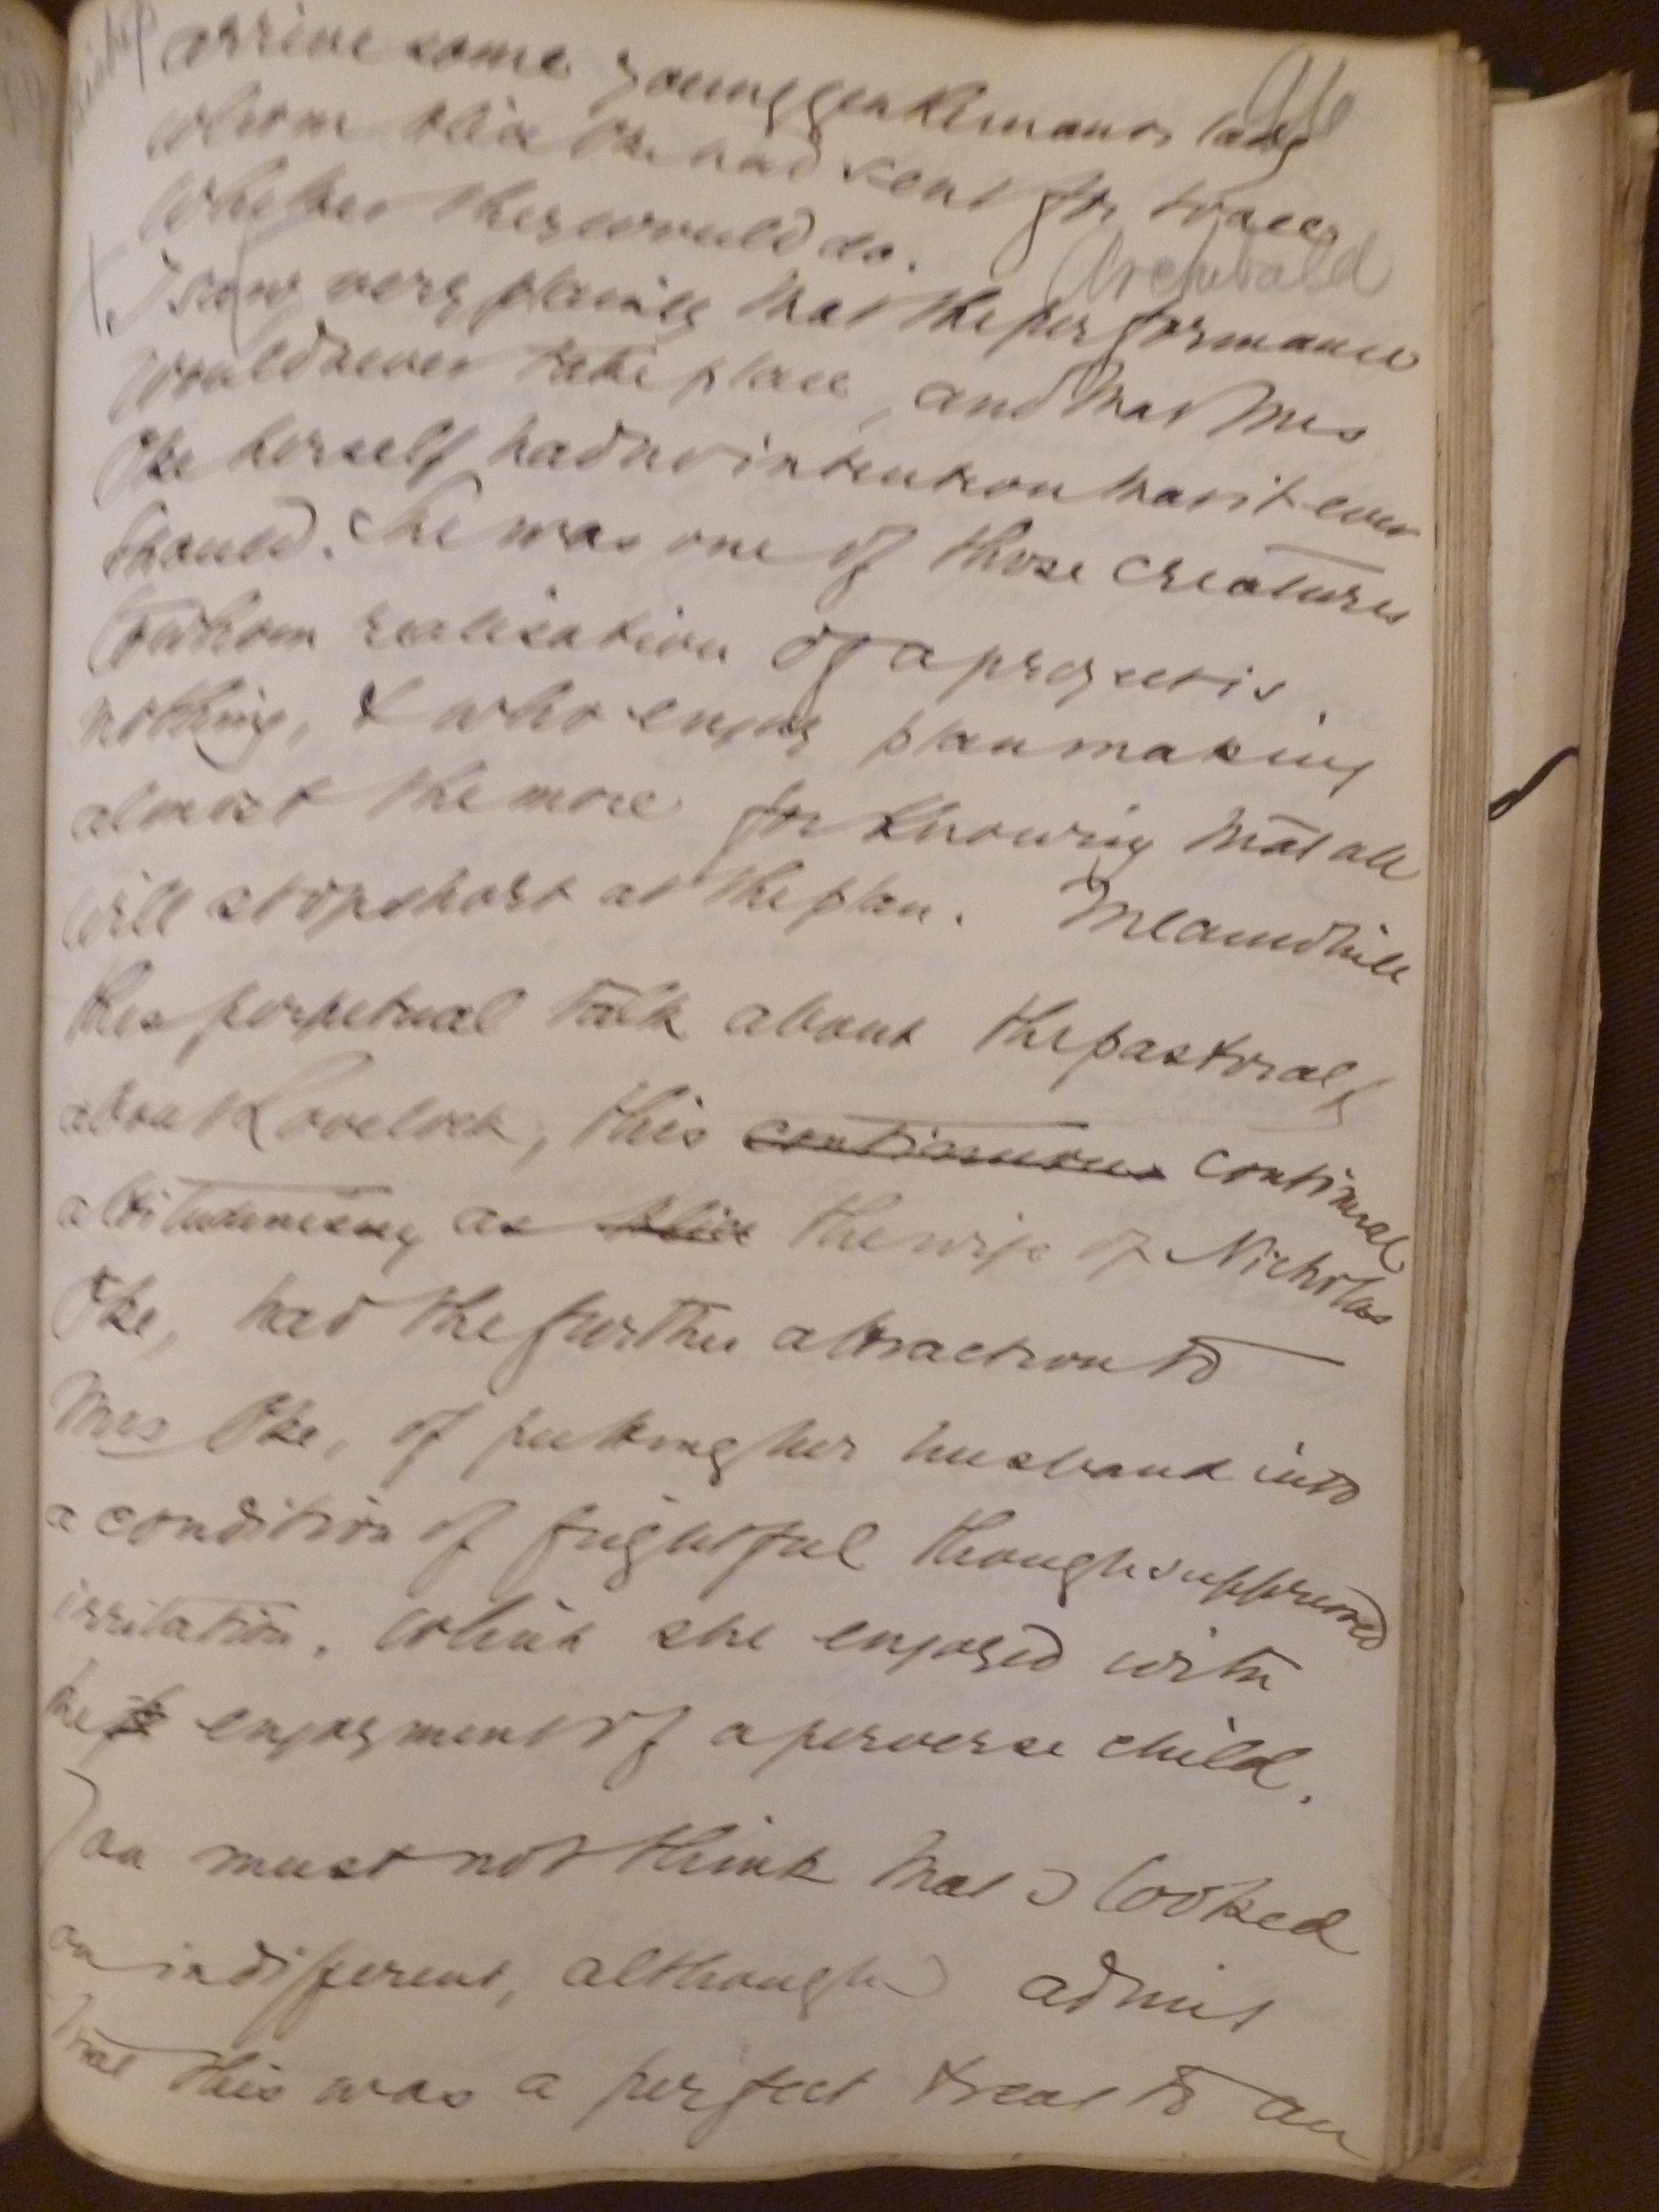 arrive some young gentleman or lady
whom Alice Oke had sent for to see
whether they would do.
Archibald
I saw very plainly that the performance
would never take place, and that Mrs
Oke herself had no intention that it ever
should. She was one of those creatures
to whom realisation of a project is
nothing, & who enjoy plan making
almost the more for knowing that all
will stop short at the plan. Meanwhile
this perpetual talk about the pastoral,
about Lovelock, this continuous continual
attitudinising as Alice the wife of Nicholas
Oke, had the further attraction to
Mrs Oke, of putting her husband into
a condition of frightful though suppressed
irritation, which she enjoyed with
the enjoyment of a perverse child.
You must not think that I looked
on indifferent, although I admit
that this was a perfect treat to an